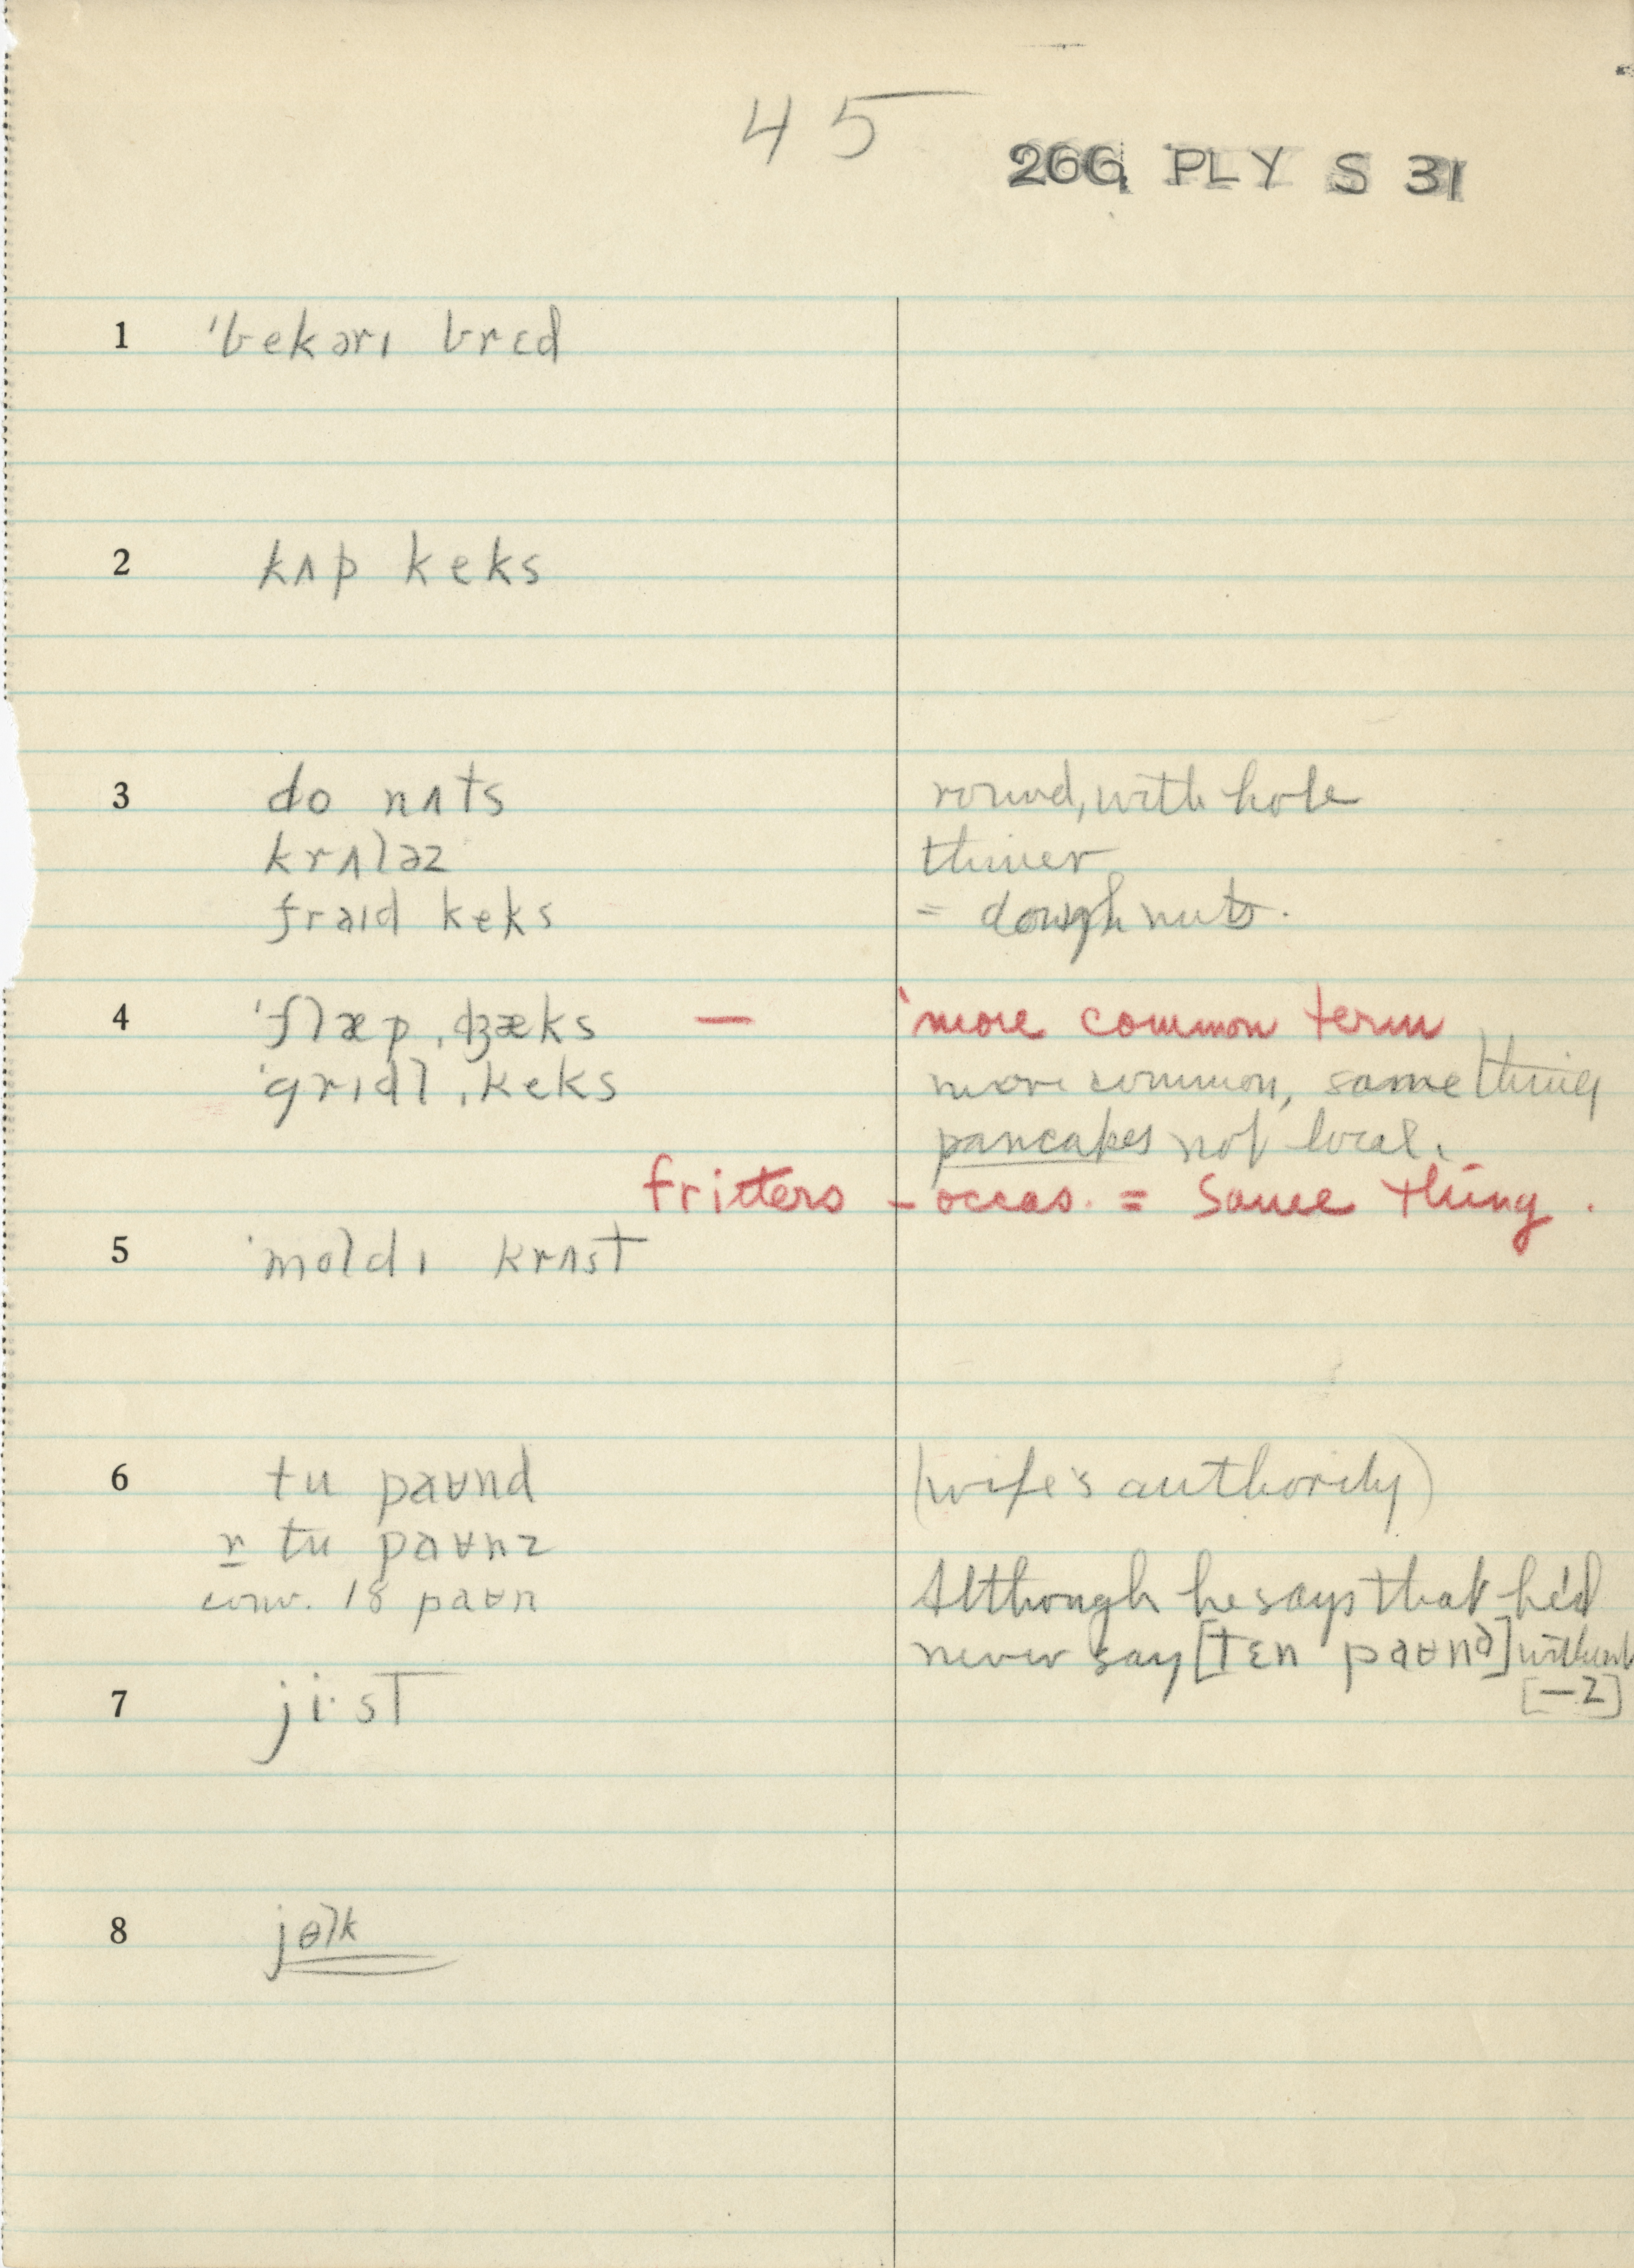 45
266 PLY S 31
1 ˈbekərɪ brɛd
2 kʌp keks
3 do nʌts round, with hole
krʌləz thiner
fraɪd keks = doughnuts.
4 ˈflæpˌʤæks — more common term
ˈgrɪdlˌkeks more common, same thing
pancakes not local.
fritters – occas. = same thing.
5 ˈmoldɪ krʌst
6 tu paʊnd (wife's authority)
r tu paʊnz
conv. 18 paʊn Although he says that he'd
never say [tɛn paʊnd] without
[—z]
7 ji·st
8 jɵlk